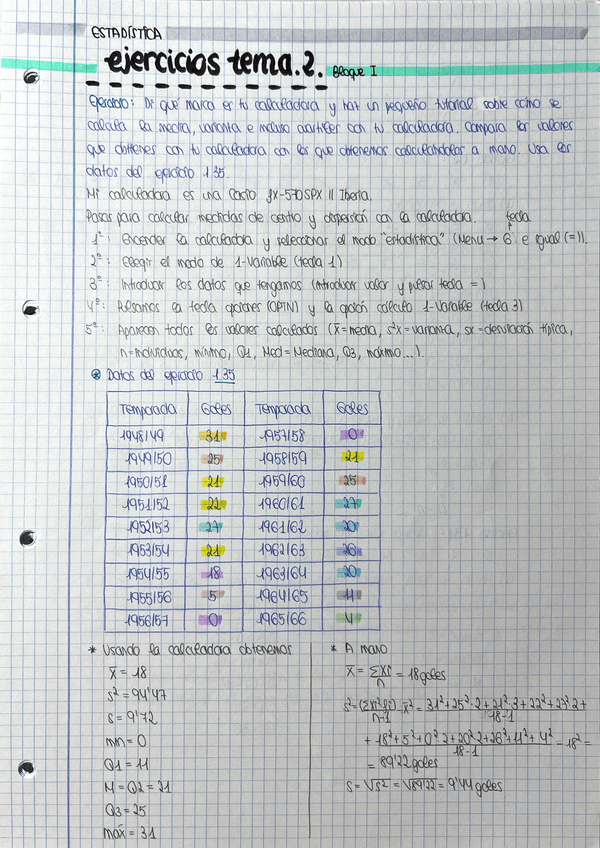 ESTADÍSTICA
ejercicios tema.2. Bloque I
Ejercicio: Di qué marca es tu calculadora y haz un pequeño tutorial sobre cómo se
calcula la media, varianza e incluso cuartiles con tu calculadora. Compara los valores
que obtienes con tu calculadora con los que obtenemos calculándolos a mano. Usa los
datos del ejercicio 1.35.
Mi calculadora es una Casio fx-570SPX II Iberia.
Pasos para calcular medidas de centro y dispersión con la calculadora. tecla
1º: Encender la calculadora y seleccionar el modo "estadística" (Menu → 6 e igual (=)).
2º: Elegir el modo de 1-Variable (tecla 1)
3º: Introducir los datos que tengamos (introducir valor y pulsar tecla =)
4º: Pulsamos la tecla opciones (OPTN) y la opción cálculo 1-Variable (tecla 3)
5º: Aparecen todos los valores calculados (x̄=media, s²x=varianza, sx=desviación típica,
n=individuos, mínimo, Q1, Med=Mediana, Q3, máximo...).
⊛ Datos del ejercicio 1.35
Temporada Goles Temporada Goles
1948/49 31 1957/58 0
1949/50 25 1958/59 21
1950/51 21 1959/60 25
1951/52 22 1960/61 27
1952/53 27 1961/62 20
1953/54 21 1962/63 26
1954/55 18 1963/64 20
1955/56 5 1964/65 11
1956/57 0 1965/66 4
* Usando la calculadora obtenemos
x̄ = 18
s² = 94'47
s = 9'72
min = 0
Q1 = 11
M = Q2 = 21
Q3 = 25
máx = 31
* A mano
x̄ = Σxi/n = 18 goles
s² = (Σxi²·fi)/n-1 - x̄² = 31²+25²·2+21²·3+22²+27²·2+/18-1
+18²+5²+0²·2+20²·2+26²+11²+4²/18-1 - 18² =
= 89'22 goles
s = √s² = √89'22 = 9'44 goles